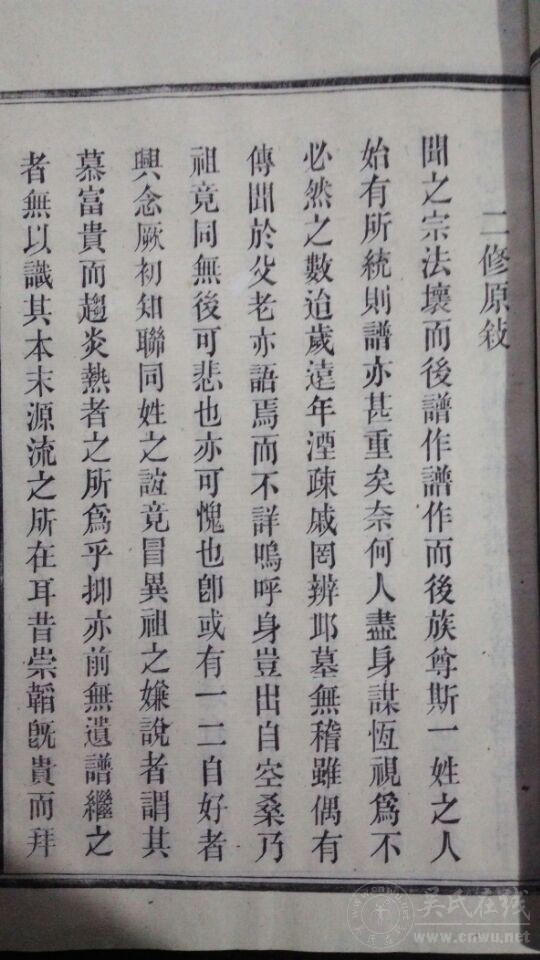 二修原敍
聞之宗法壞而後譜作譜作而後族尊斯一姓之人
始有所統則譜亦甚重矣奈何人盡身謀恆視爲不
必然之數迨歲遠年湮疎戚罔辨邱墓無稽雖偶有
傳聞於父老亦語焉而不詳嗚呼身豈出自空桑乃
祖竟同無後可悲也亦可愧也卽或有一二自好者
興念厥初知聯同姓之誼竟冒異祖之嫌說者謂其
慕富貴而趨炎熱者之所爲乎抑亦前無遺譜繼之
者無以識其本末源流之所在耳昔崇韜旣貴而拜
吳氏在线
www.cnwu.net